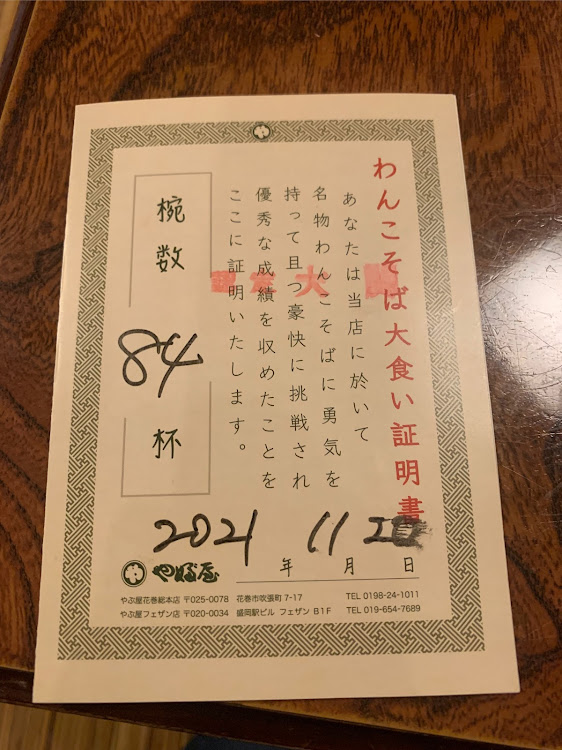 わんこそば大食い証明書
あなたは当店に於いて
名物わんこそばに勇気を
持って且つ豪快に挑戦され
優秀な成績を収めたことを
ここに証明いたします。
椀数 84 杯
2021年 11月 日
やぶ屋
やぶ屋花巻総本店 〒025-0078 花巻市吹張町 7-17 TEL 0198-24-1011
やぶ屋フェザン店 〒020-0034 盛岡駅ビル フェザン B1F TEL 019-654-7689